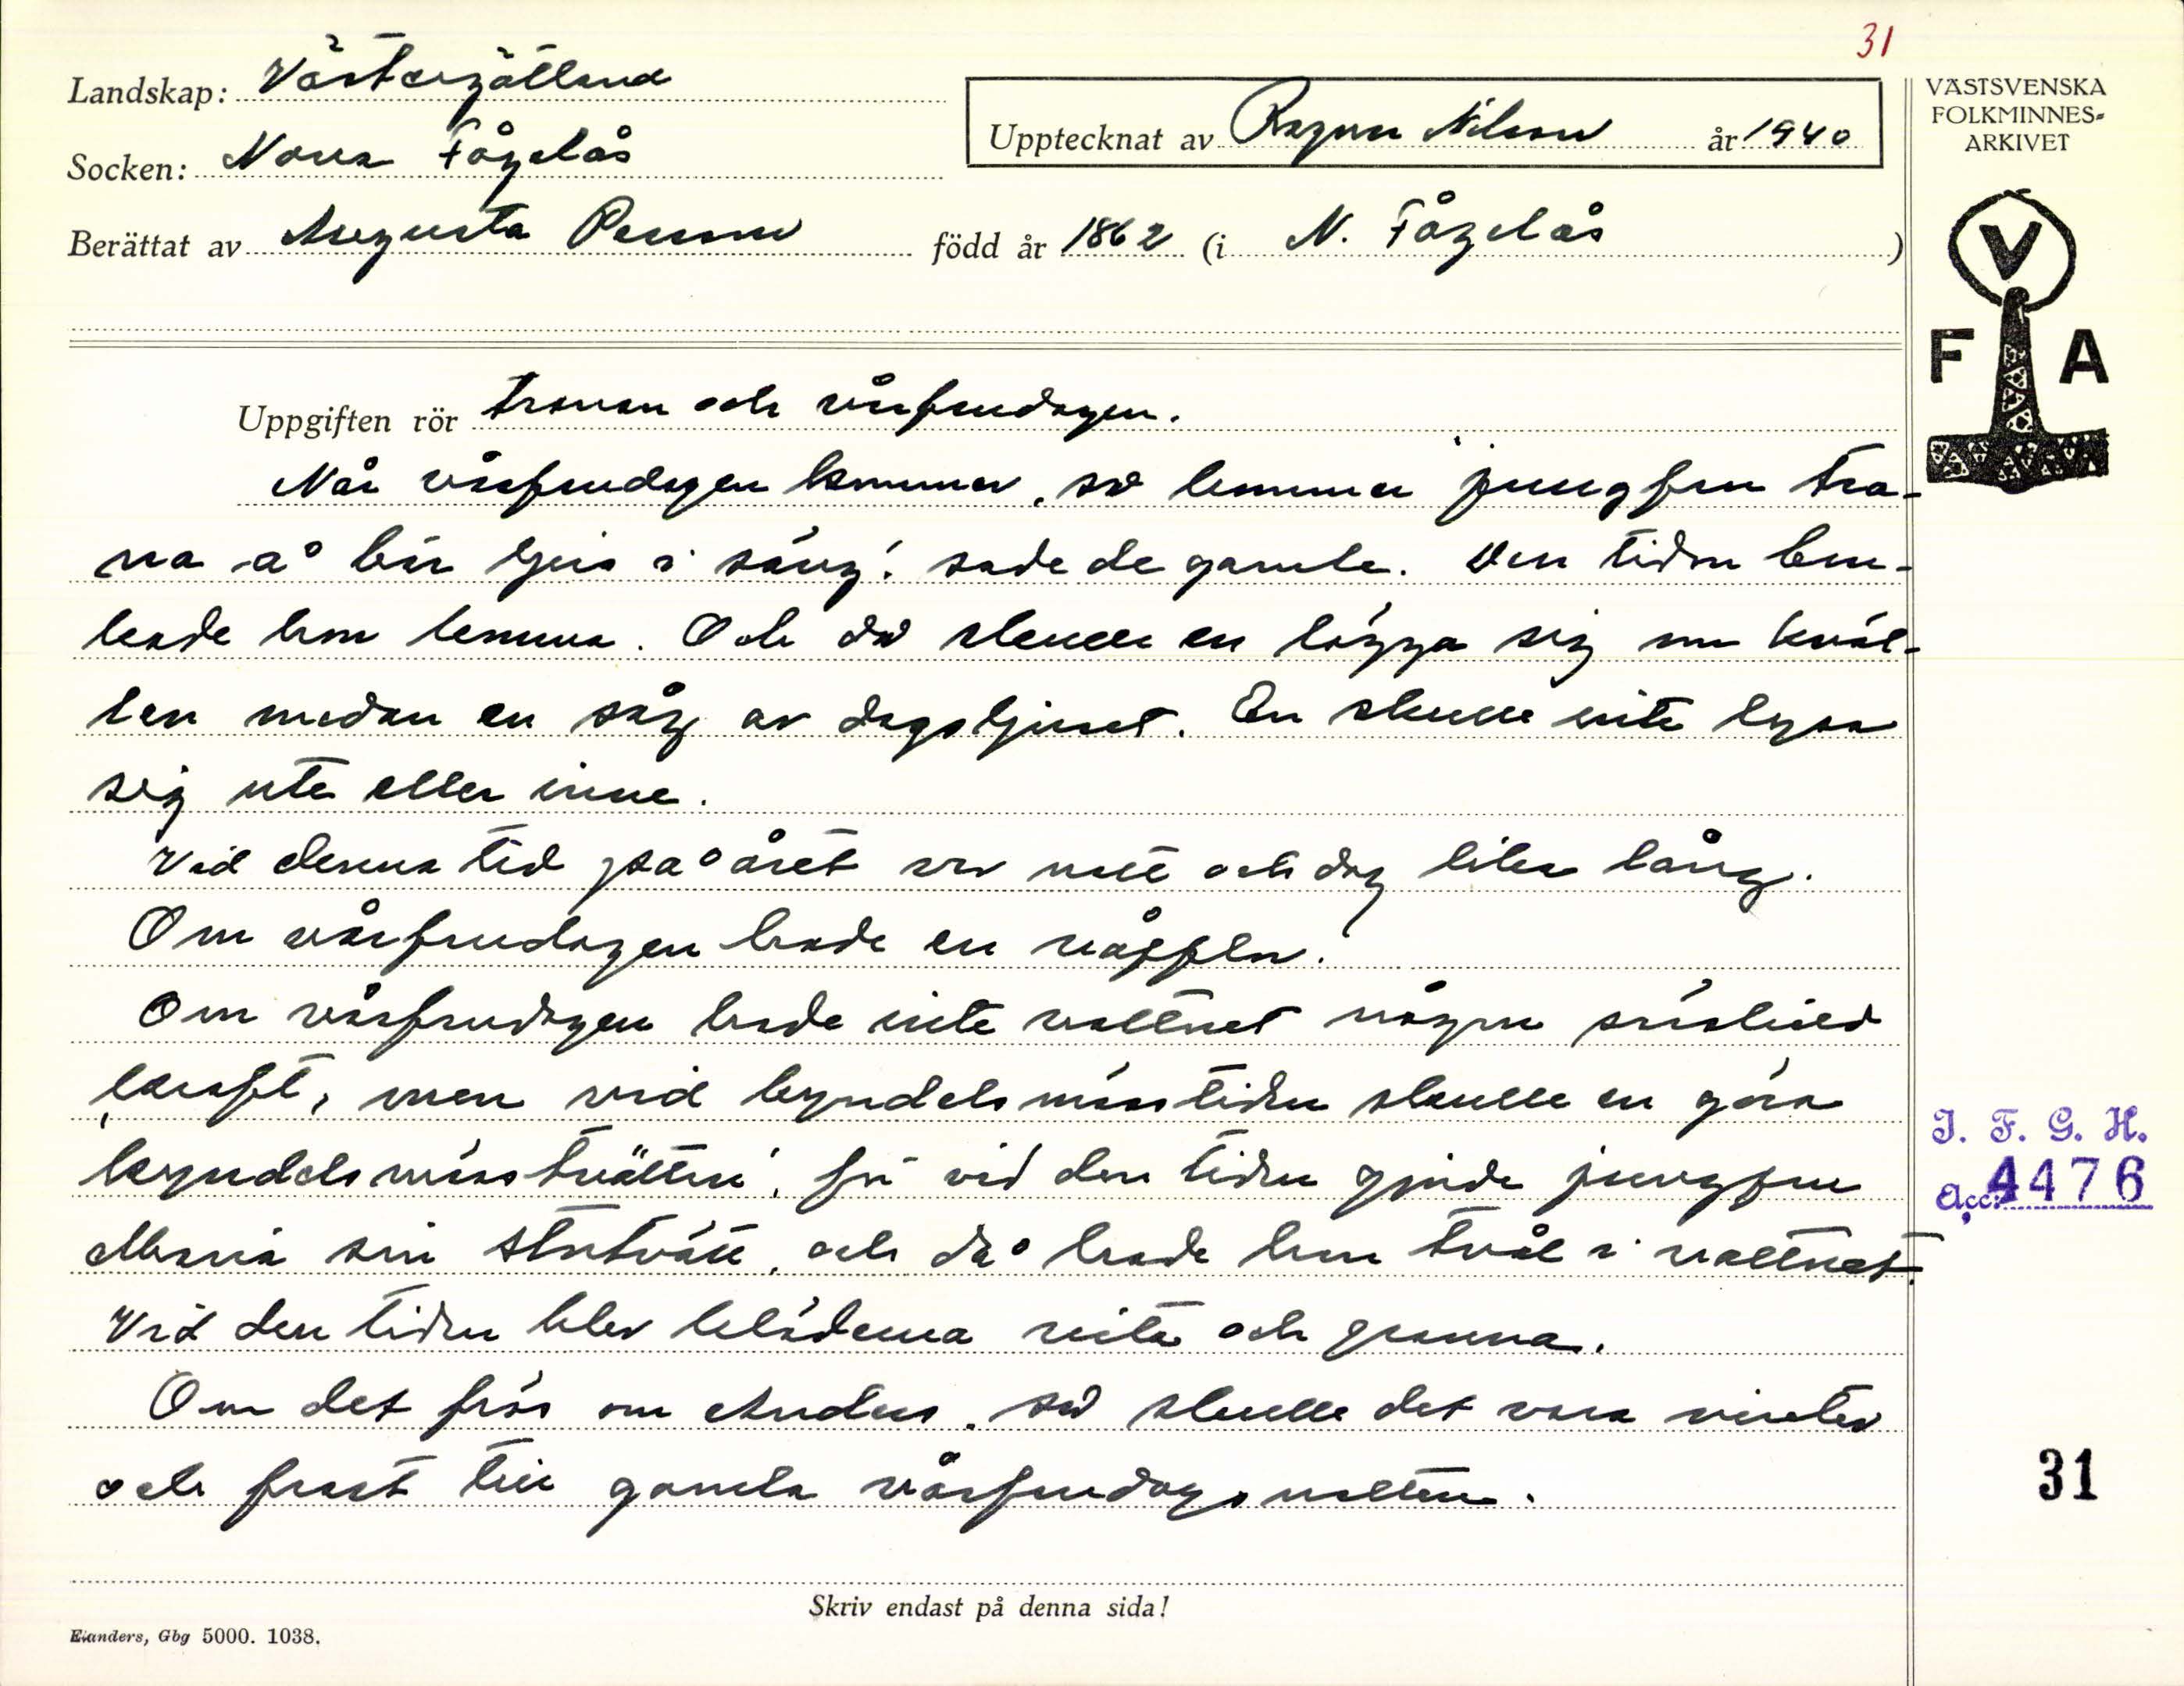 31
Landskap: Västergötland
Socken: Norra Fågelås
Upptecknat av Ragnar Nilsson år 1940
Berättat av Augusta Persson född år 1862 (i N. Fågelås)
VÄSTSVENSKA
FOLKMINNES-
ARKIVET
V
F A
Uppgiften rör tranan och vårfrudagen.
När vårfrudagen kommer, så kommer "jungfru tra-
na å bär ljus i säng". sade de gamle. Den tiden bru-
kade hon komma. Och då skulle en lägga sig om kväl-
len medan en såg av dagsljuset. En skulle inte lysa
sig ute eller inne.
Vid denna tid på året var natt och dag lika lång.
Om vårfrudagen hade en våfflor.
Om vårfrudagen hade inte vattnet någon särskild
kraft, men vid kyndelsmässtiden skulle en göra
kyndelsmässtvätten, för vid den tiden gjorde jungfru
Maria sin stortvätt, och då hade hon tvål i vattnet.
Vid den tiden blev kläderna vita och granna.
Om det frös om Anders, så skulle det vara vinter
och frost till gamla vårfrudagsnatten.
I. F. G. H.
Acc. 4476
31
Skriv endast på denna sida!
Elanders, Gbg 5000. 1038.